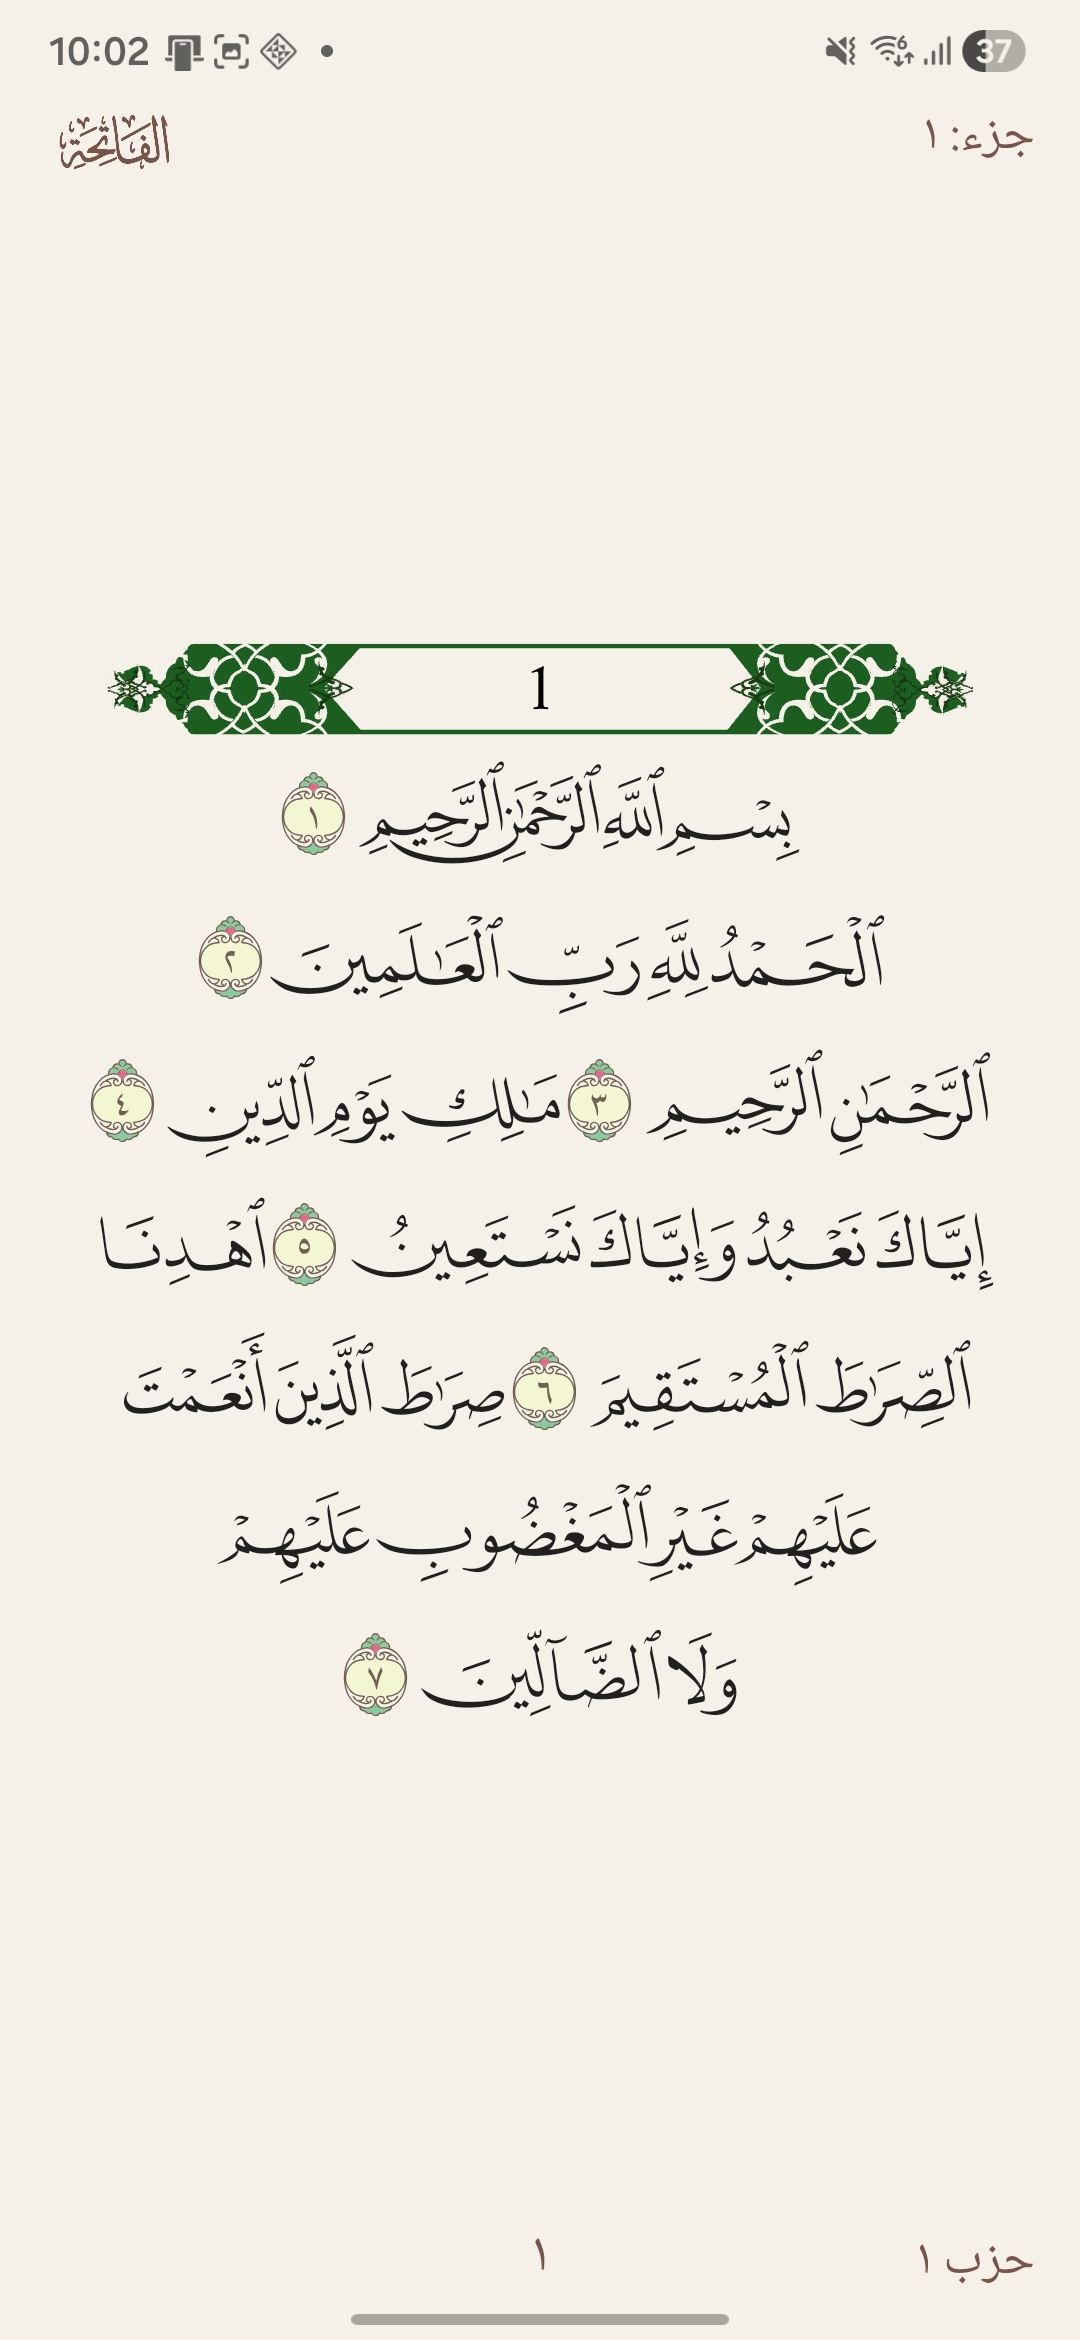 10:02
37
جزء: ١
الفَاتِحَة
1
بِسۡمِ ٱللَّهِ ٱلرَّحۡمَٰنِ ٱلرَّحِيمِ ١
ٱلۡحَمۡدُ لِلَّهِ رَبِّ ٱلۡعَٰلَمِينَ ٢
ٱلرَّحۡمَٰنِ ٱلرَّحِيمِ ٣ مَٰلِكِ يَوۡمِ ٱلدِّينِ ٤
إِيَّاكَ نَعۡبُدُ وَإِيَّاكَ نَسۡتَعِينُ ٥ ٱهۡدِنَا
ٱلصِّرَٰطَ ٱلۡمُسۡتَقِيمَ ٦ صِرَٰطَ ٱلَّذِينَ أَنۡعَمۡتَ
عَلَيۡهِمۡ غَيۡرِ ٱلۡمَغۡضُوبِ عَلَيۡهِمۡ
وَلَا ٱلضَّآلِّينَ ٧
حزب ١
١